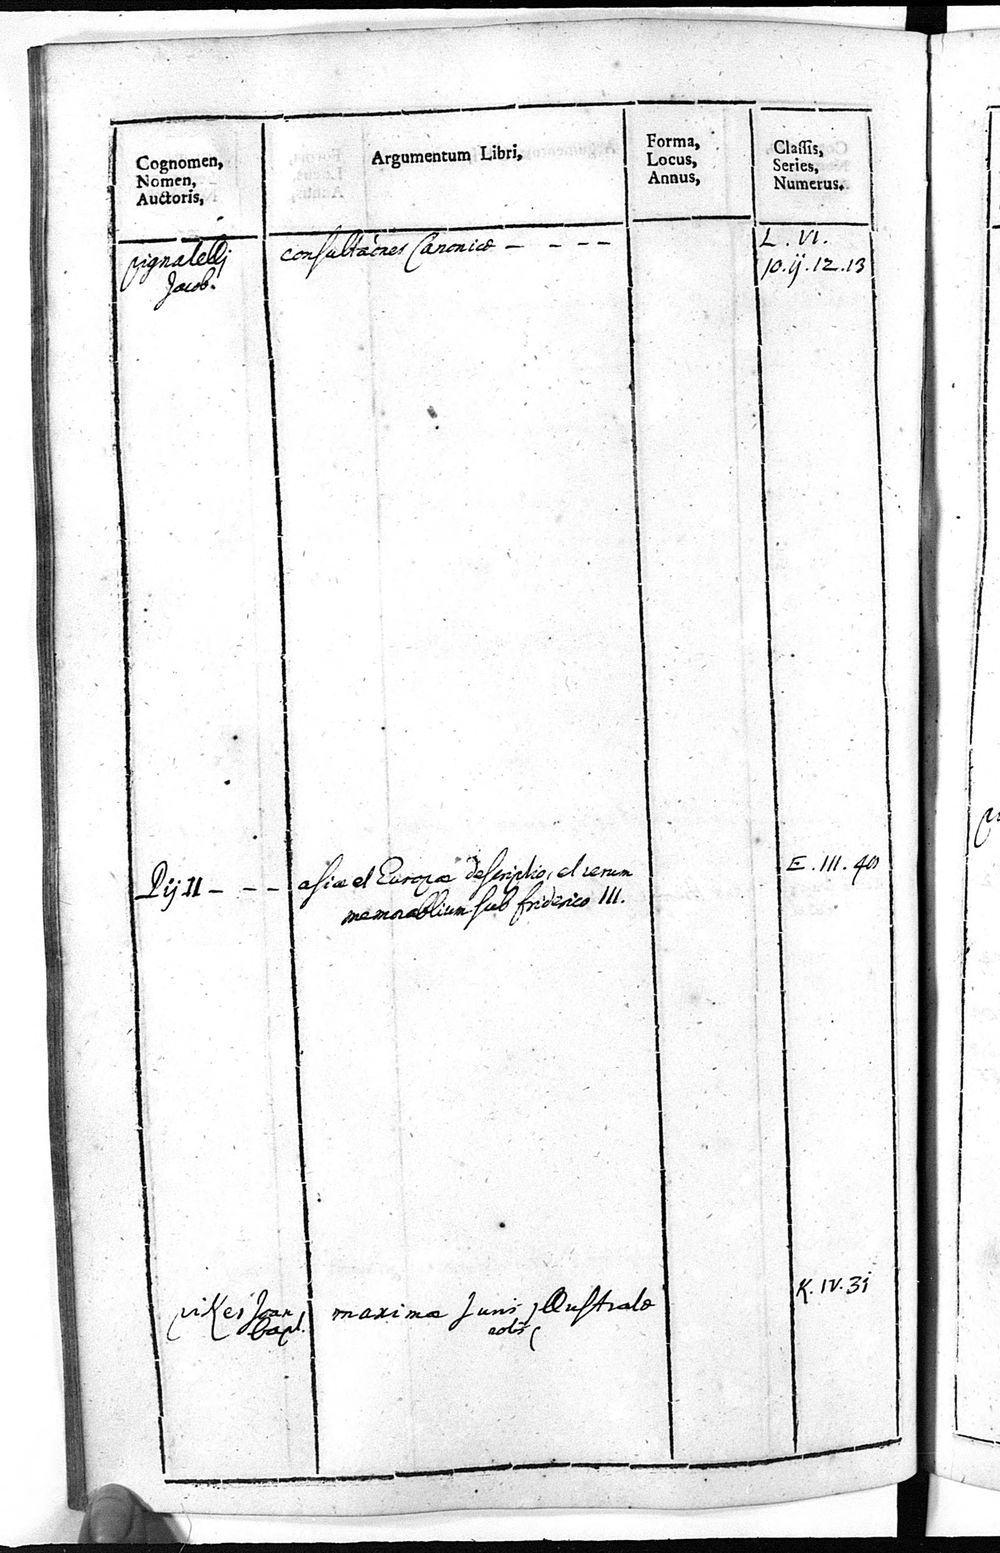 Cognomen,
Nomen,
Auctoris,
Argumentum Libri,
Forma,
Locus,
Annus,
Classis,
Series,
Numerus.
pignatellj
Jacob.
consultaones Canonicæ - - - -
L. VI.
10. ij. 12. 13
Pij II - - -
asiæ et Europæ descriptio, et rerum
memorablium sub friderico III.
E. III. 40
piKes Joan
bapt.
maximæ Juris
K. IV. 31